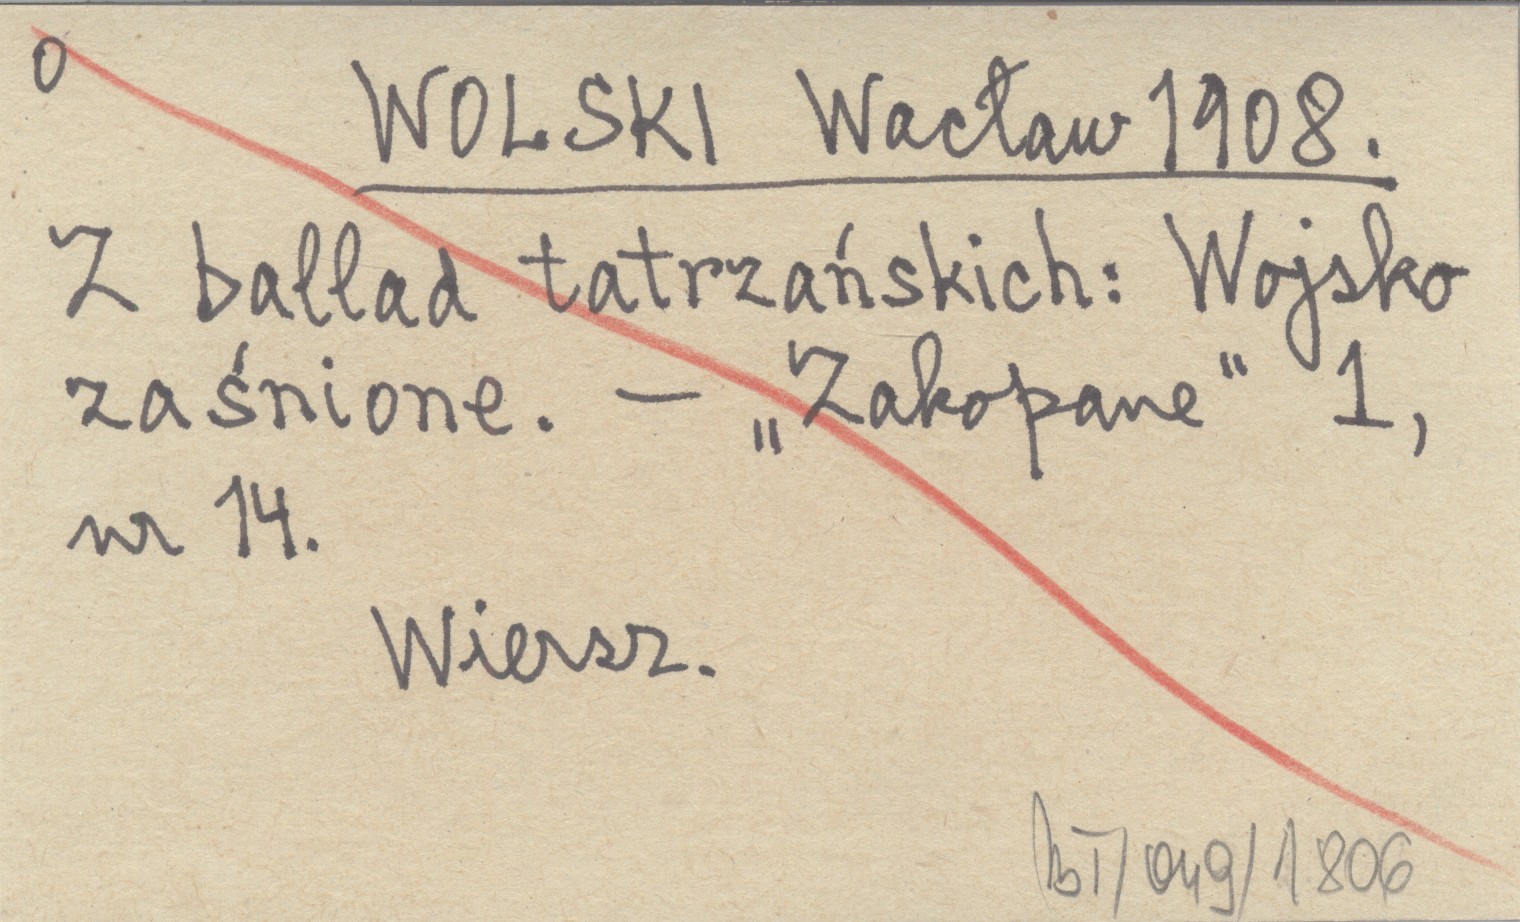 0
WOLSKI Wacław 1908.
Z ballad tatrzańskich: Wojsko
zaśnione. — „Zakopane" 1,
nr 14.
Wiersz.
bT/049/1806